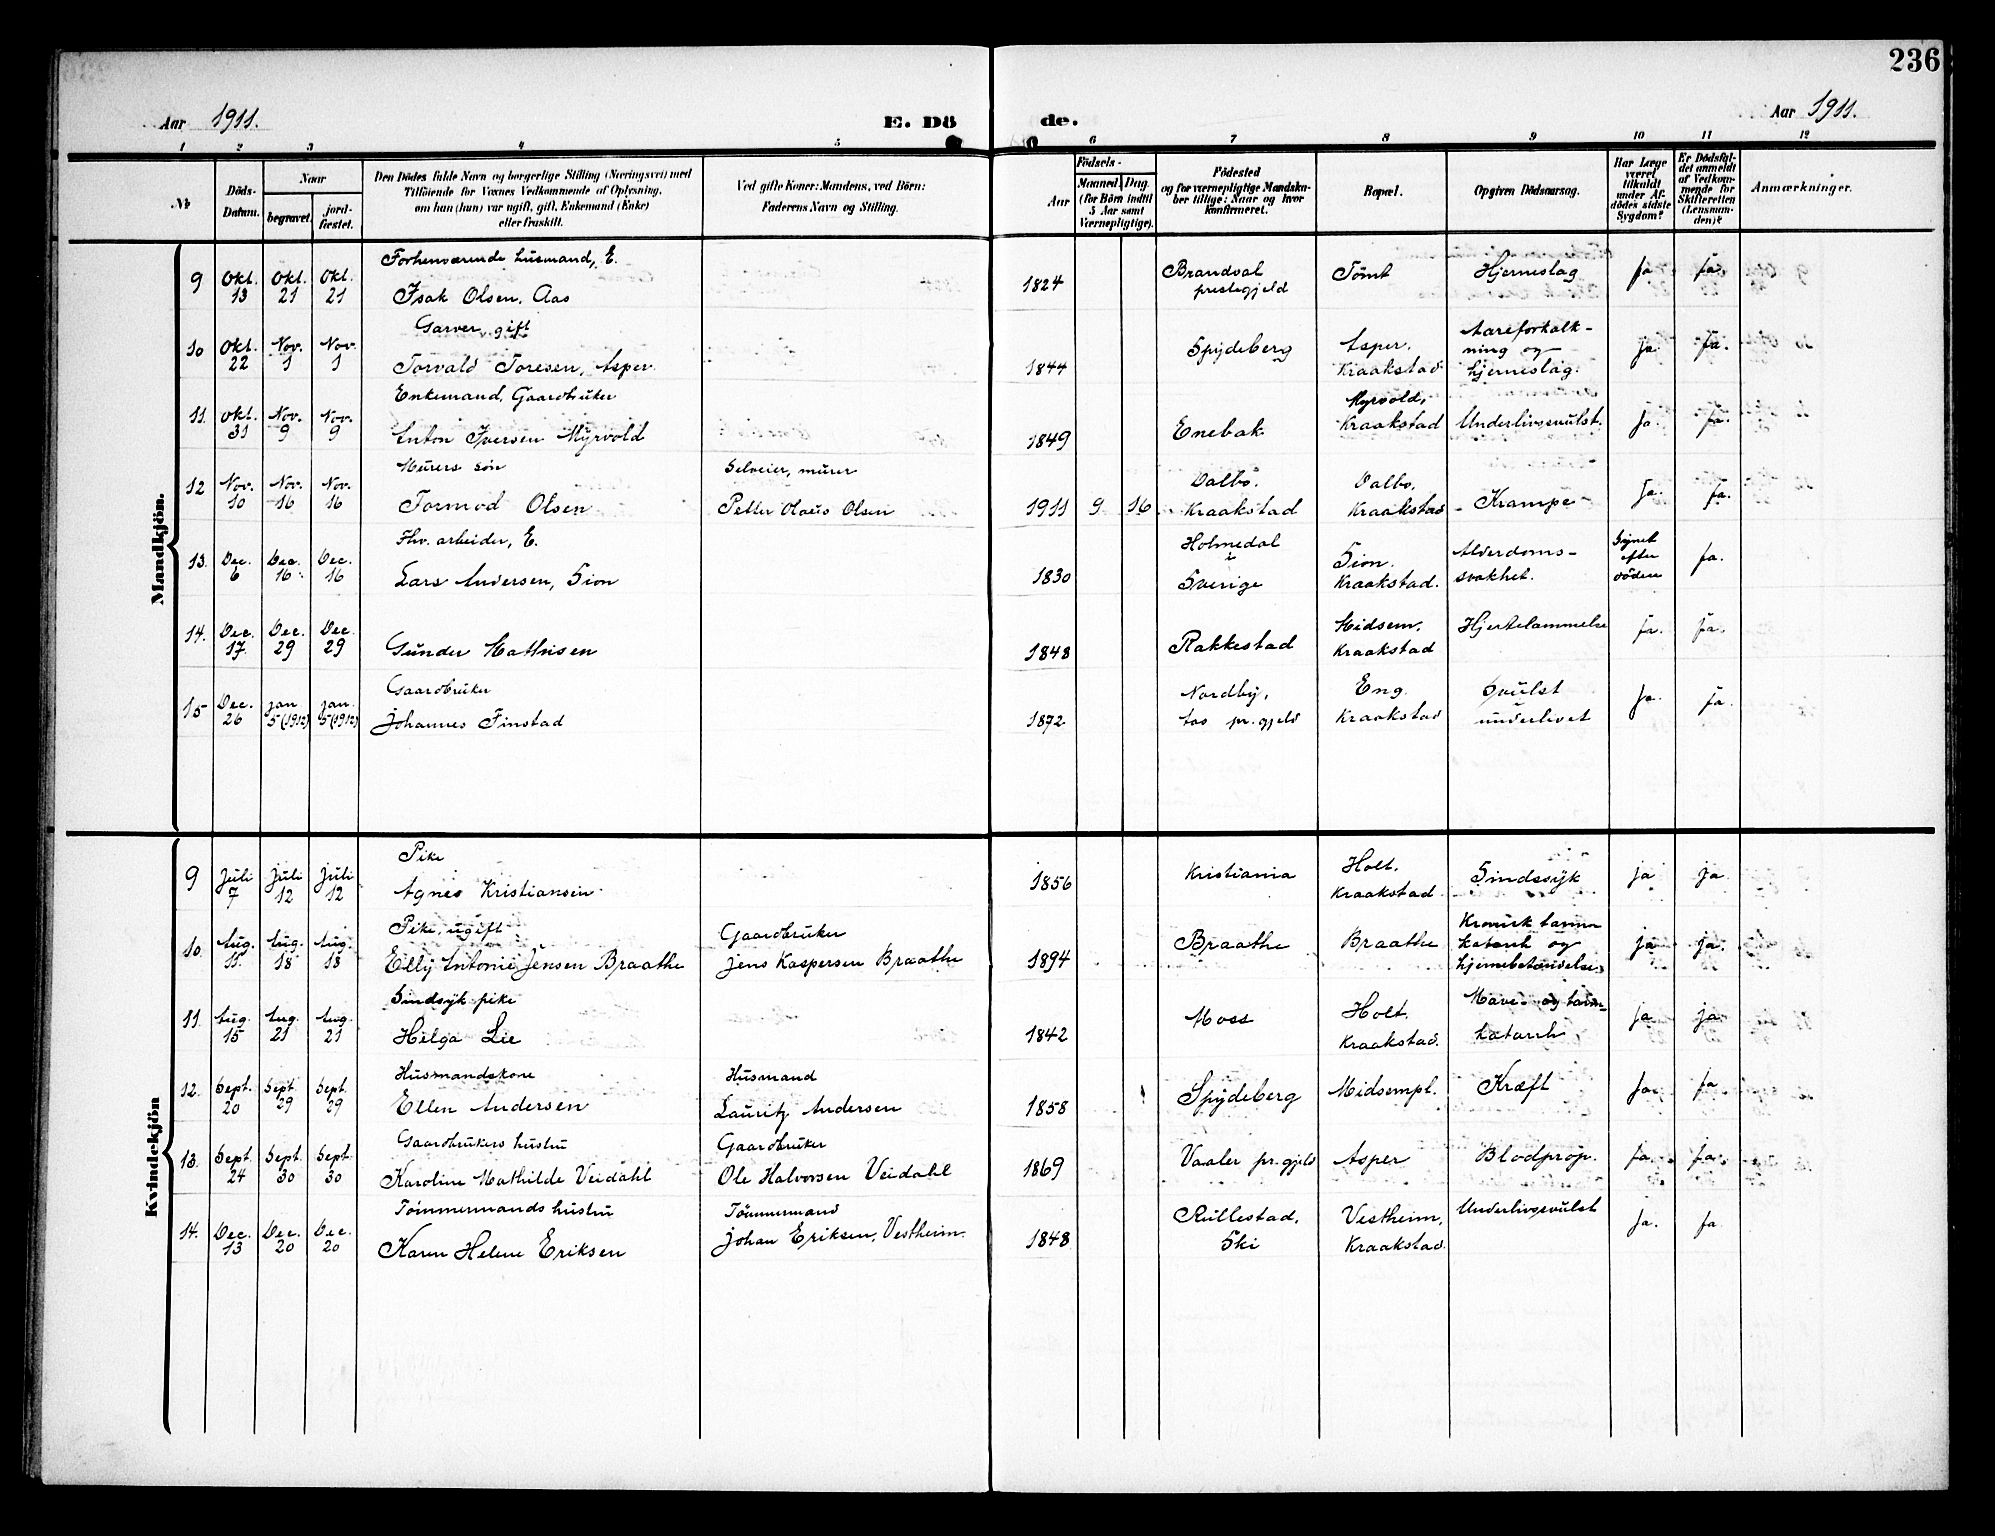 236
Aar 1911. E. Dö de. Aar 1911.
1 2 3 4 5 6 7 8 9 10 11 12
No Döds-Datum. Naar begravet. jord-fæstet. Den Dödes fulde Navn og borgerlige Stilling (Næringsvei) med Tilföiende for Voxnes Vedkommende af Oplysning, om han (hun) var ugift, gift, Enkemand (Enke) eller fraskilt. Ved gifte Koner: Mandens, ved Börn: Faderens Navn og Stilling. Födsels- Aar Maaned Dag. (for Börn indtil 5 Aar samt Værnepligtige). Födested og for værnepligtige Mandskaber tillige: Naar og hvor konfirmeret. Bopæl. Opgiven Dödsaarsag. Har Læge været tilkaldt under Afdödes sidste Sygdom? Er Dödsfaldet anmeldt af Vedkommende for Skifteretten (Lensmanden)? Anmærkninger.
Mandkjön.
9 Okt. 13 Okt. 21 Okt. 21 Forhenværende husmand, E. Isak Olsen, Aas 1824 Brandval prestegjeld Tömt Hjerneslag ja ja.
10 Okt. 22 Nov. 1 Nov. 1 Garver, gift Torvald Toresen, Asper. 1844 Spydeberg Asper. Kraakstad Aareforkalkning og hjerneslag. ja. ja.
11. Okt. 31 Nov. 9 Nov. 9 Enkemand, Gaardbruker Anton Iversen Myrvold 1849 Enebak Myrvold, Kraakstad Underlivssvulst. ja. ja.
12 Nov. 10 Nov. 16 Nov. 16 Murers sön Tormod Olsen Selveier, murer Petter Olaus Olsen 1911 9 16 Dalbo. Kraakstad Dalbo, Kraakstad Krampe ja. ja.
13. Dec. 6 Dec. 16. Dec. 16 Fhv. arbeider, E. Lars Andersen, Sion 1830 Holmedal i Sverige Sion. Kraakstad. Alderdomssvakhet. Synet efter döden ja.
14. Dec. 17. Dec. 29 Dec. 29 Gunder Mathisen 1848 Rakkestad Midsem, Kraakstad Hjertelammelse ja. ja.
15 Dec. 26 jan 5 (1912) jan. 5 (1912) Gaardbruker Johannes Finstad 1872 Nordby, Aas pr.gjeld Eng. Kraakstad Svulst i underlivet ja. ja.
Kvindekjön
9 Juli 7 Juli 12 Juli 12 Pike Agnes Kristiansen 1856 Kristiania Holt. Kraakstad Sindssyk ja ja.
10. Aug. 11. Aug. 18 Aug. 18 Pike, ugift Elly Antonie Jensen Braathe Gaardbruker Jens Kaspersen Braathe 1894 Braathe Braathe Kronisk tarmkatarrh og hjernebetændelse. ja ja.
11. Aug. 15 Aug. 21 Aug. 21 Sindsyk pike Helga Lie 1842 Moss Holt, Kraakstad. Mave- og tarmkatarrh ja ja
12. Sept. 20 Sept. 29 Sept. 29 Husmandskone Ellen Andersen Husmand Lauritz Andersen 1858 Spydeberg Midsempl. Kræft ja. ja
13. Sept. 24 Sept. 30 Sept. 30 Gaardbrukers hustru Karoline Mathilde Veidahl Gaardbruker Ole Halvorsen Veidahl 1869 Vaaler pr.gjeld Asper Blodprop. ja. ja.
14. Dec. 13 Dec. 20 Dec. 20 Tömmermands hustru Karen Helene Eriksen Tömmermand Johan Eriksen, Vestheim. 1848 Rullestad, Ski Vestheim, Kraakstad. Underlivssvulst ja. ja.